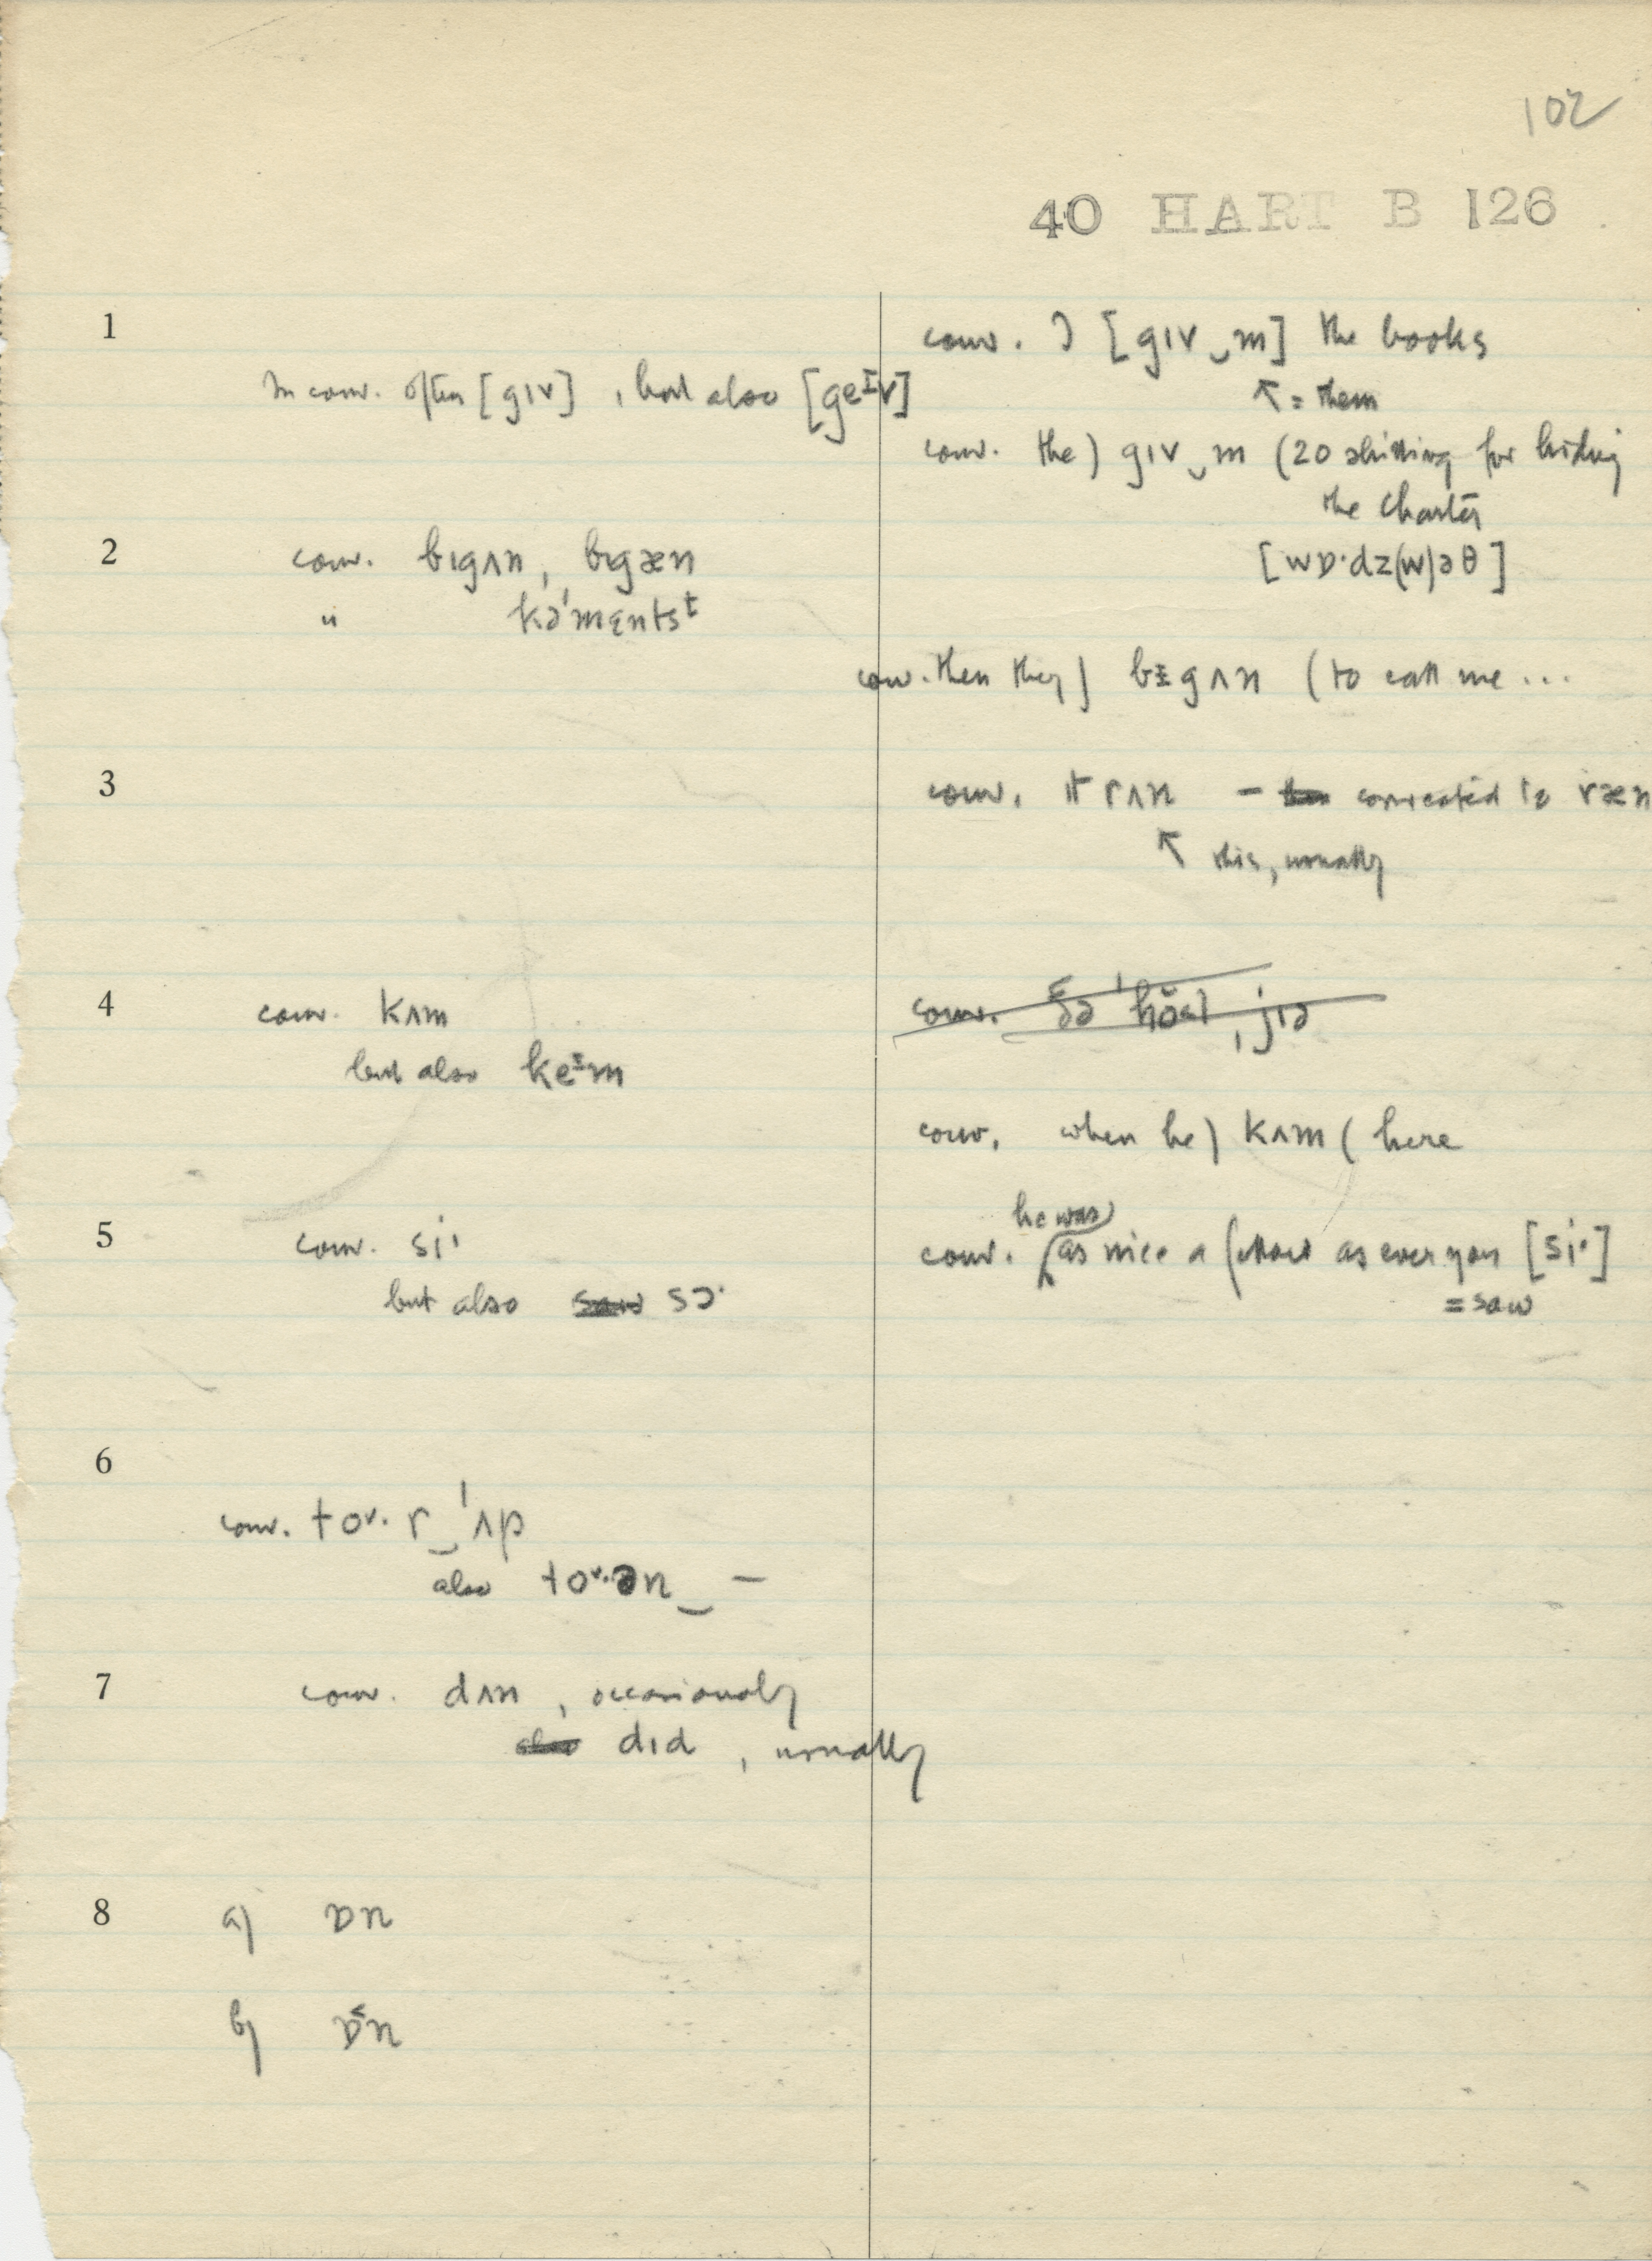 102
40 HART B 126
1
conv. I [gɪv‿m] the books
In conv. often [gɪv], but also [geᶦv]
↖ = them
conv. the) gɪv‿m (20 shilling for hiding
the Charter
2
conv. bɪgʌn, bɪgæn
[wɒ·dz(w)əθ]
" kə'mɛntsᵗ
conv. then they) bɪgʌn (to call me ...
3
conv. it rʌn - corrected to ræn
↖ this, usually
4
conv. kʌm
but also keᶦm
conv. when he) kʌm (here
5
he was)
conv. si·
conv. (as nice a fellow as ever you [si·]
but also sɔ·
= saw
6
conv. toᵛ· r‿'ʌp
also toᵛ·ən‿ —
7
conv. dʌn, occasionally
dɪd, usually
8
a) ɒn
b) ɒ̆n